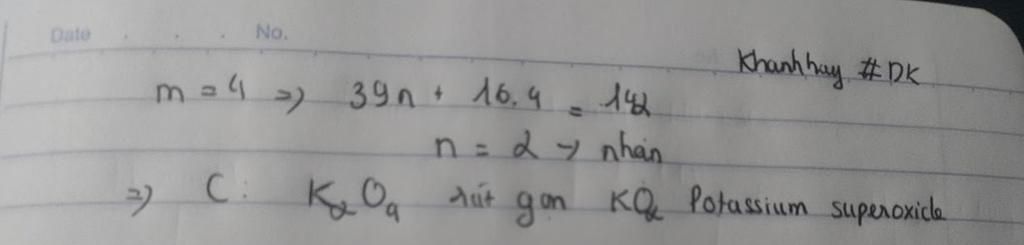 Date . . . No.
Khanhhay #DK
m = 4 => 39n + 16.4 = 142
n = 2 -> nhân
=> C: K2O4 rút gọn KO2 Potassium superoxide